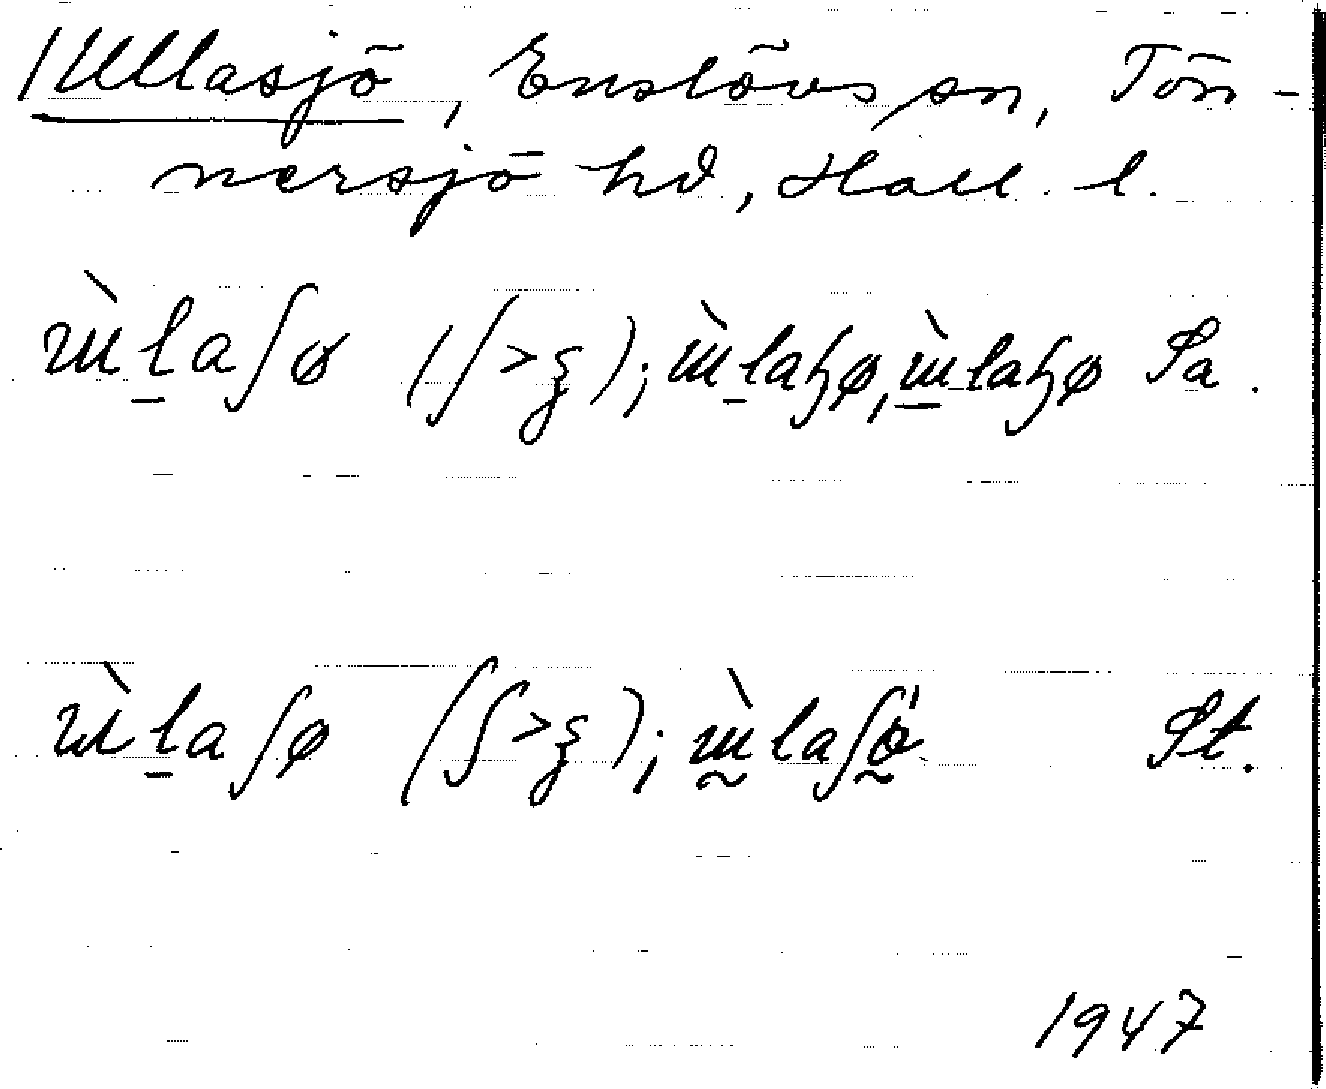 /Ullasjö, Enslövs sn, Tön-
nersjö hd, Hall. l.
ɯ̀l̠aʃø (ʃ>ʒ); ɯ̀l̠aɧø, ɯ̠̀laɧø Sa.
ɯ̀l̠aʃø (ʃ>ʒ); ɯ̰̀laʃø̰' St.
1947